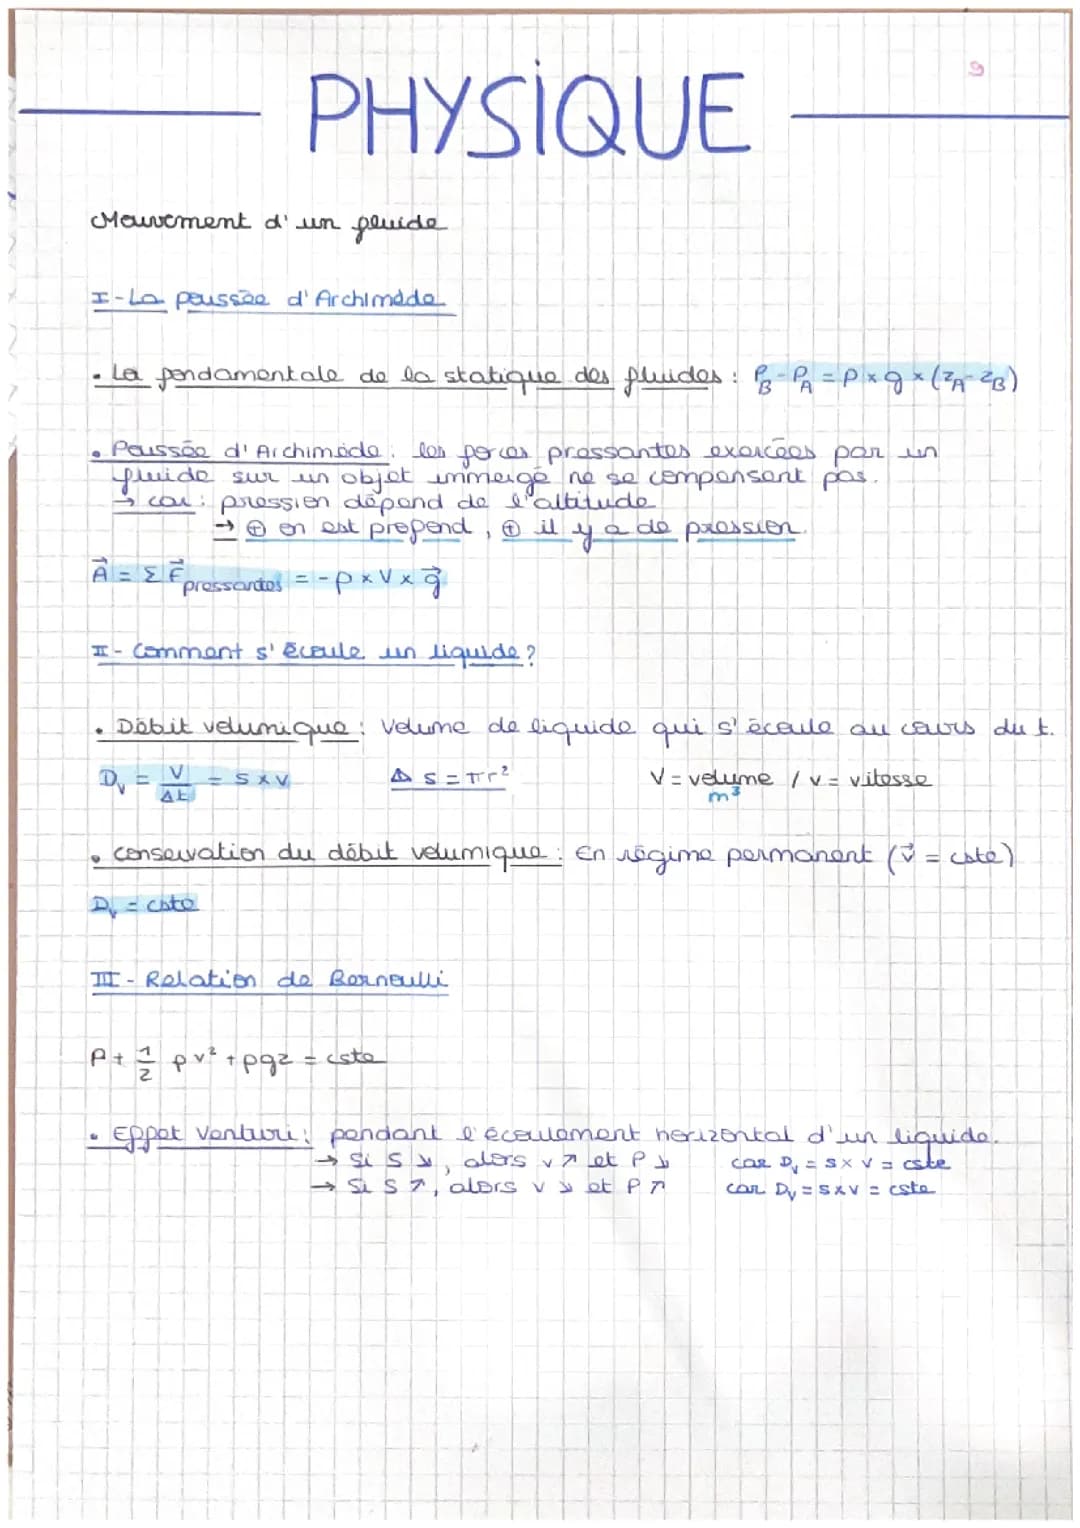 9
PHYSIQUE
Mouvement d'un fluide
I - La poussée d'Archimède
• La fondamentale de la statique des fluides : P_B - P_A = ρ × g × (z_A - z_B)
• Poussée d'Archimède : les forces pressantes exercées par un
fluide sur un objet immergé ne se compensent pas.
→ car : pression dépend de l'altitude
→ ⊕ on est profond, ⊕ il y a de pression.
A⃗ = Σ F⃗ pressantes = - ρ × V × g⃗
II - Comment s'écoule un liquide ?
• Débit volumique : Volume de liquide qui s'écoule au cours du t.
D_v = V/Δt = S × v   Δ S = πr²   V = volume / v = vitesse
m³
• Conservation du débit volumique : En régime permanent (v⃗ = cste)
D_v = cste
III - Relation de Bernoulli
P + 1/2 ρv² + ρgz = cste
• Effet Venturi : pendant l'écoulement horizontal d'un liquide.
→ Si S ↘, alors v ↗ et P ↘   car D_v = S × v = cste
→ Si S ↗, alors v ↘ et P ↗   car D_v = S × v = cste